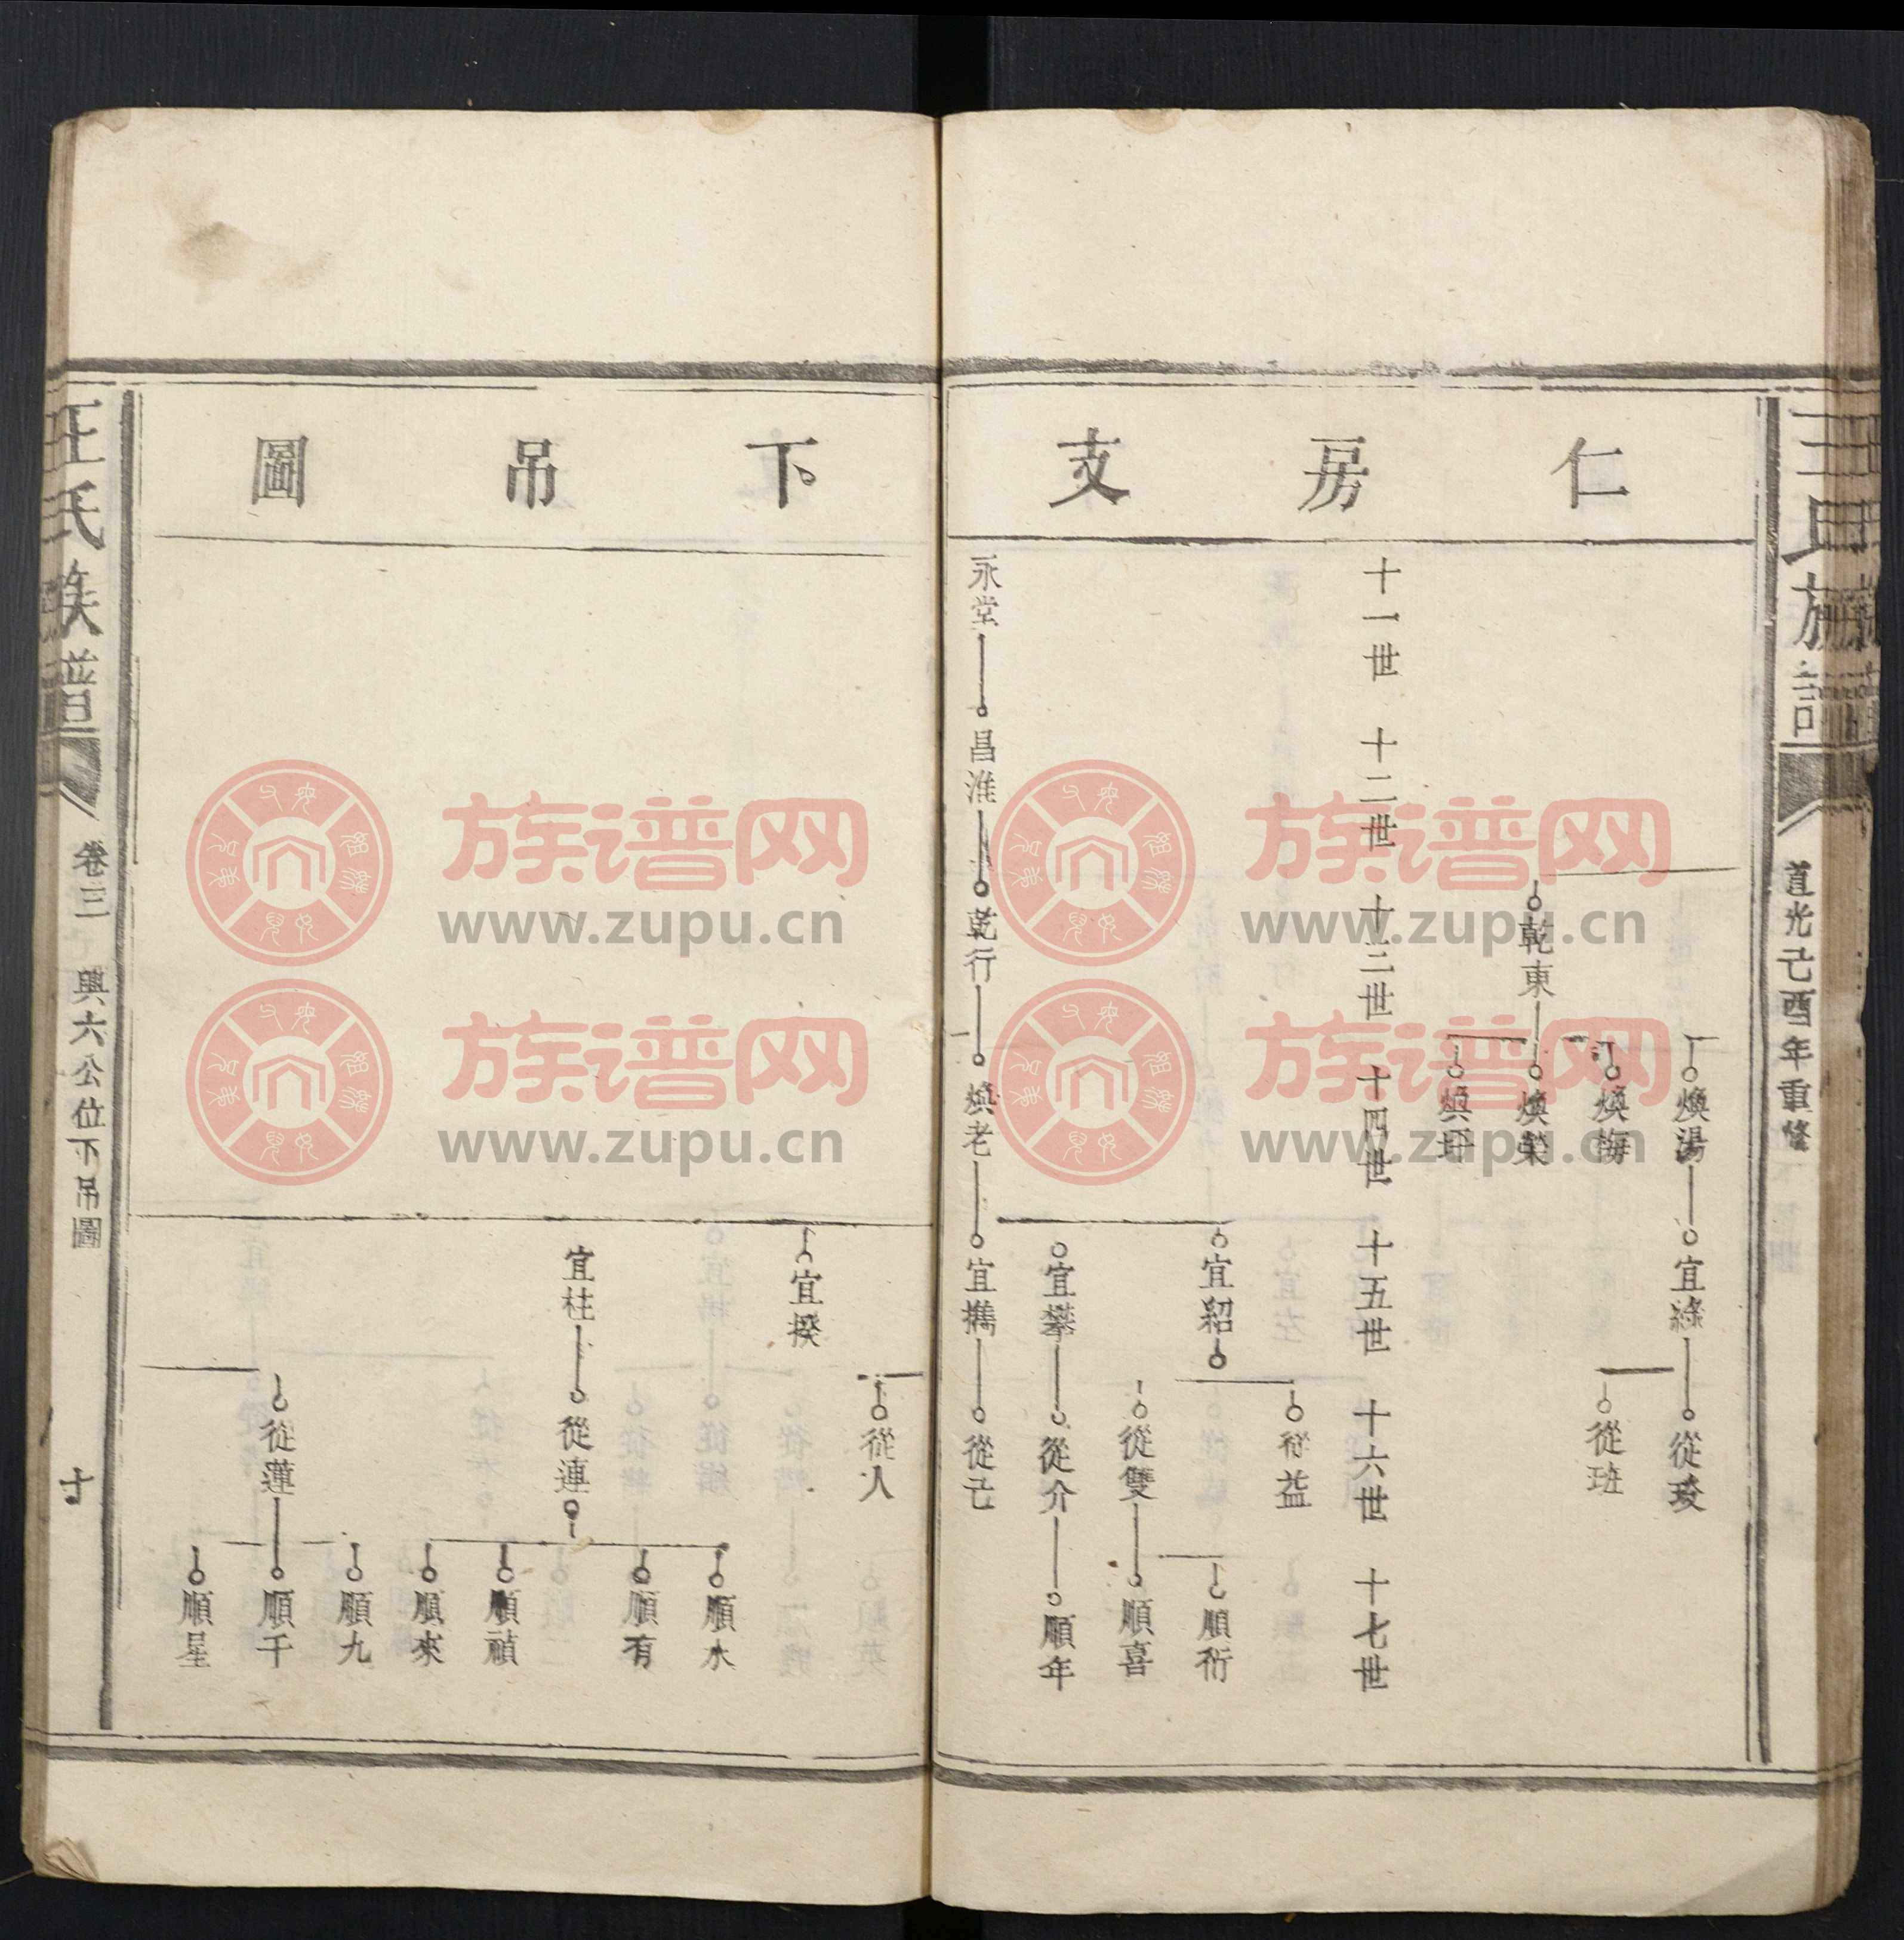 仁房支
下吊圖
道光己酉年重修
煥湯
宜綠
從珱
從班
煥梅
乾東
煥榮
煥坪
十一世
十二世
十三世
十四世
十五世
十六世
十七世
宜紹
從益
順衍
從雙
順喜
宜攀
從介
順年
永堂
昌淮
乾行
煥老
宜攜
從己
從人
宜揆
順水
順有
宜柱
從連
順禎
順來
順九
從蓮
順千
順星
汪氏族譜
卷三
興六公位下吊圖
十
族谱网
www.zupu.cn
族谱网
www.zupu.cn
族谱网
www.zupu.cn
族谱网
www.zupu.cn